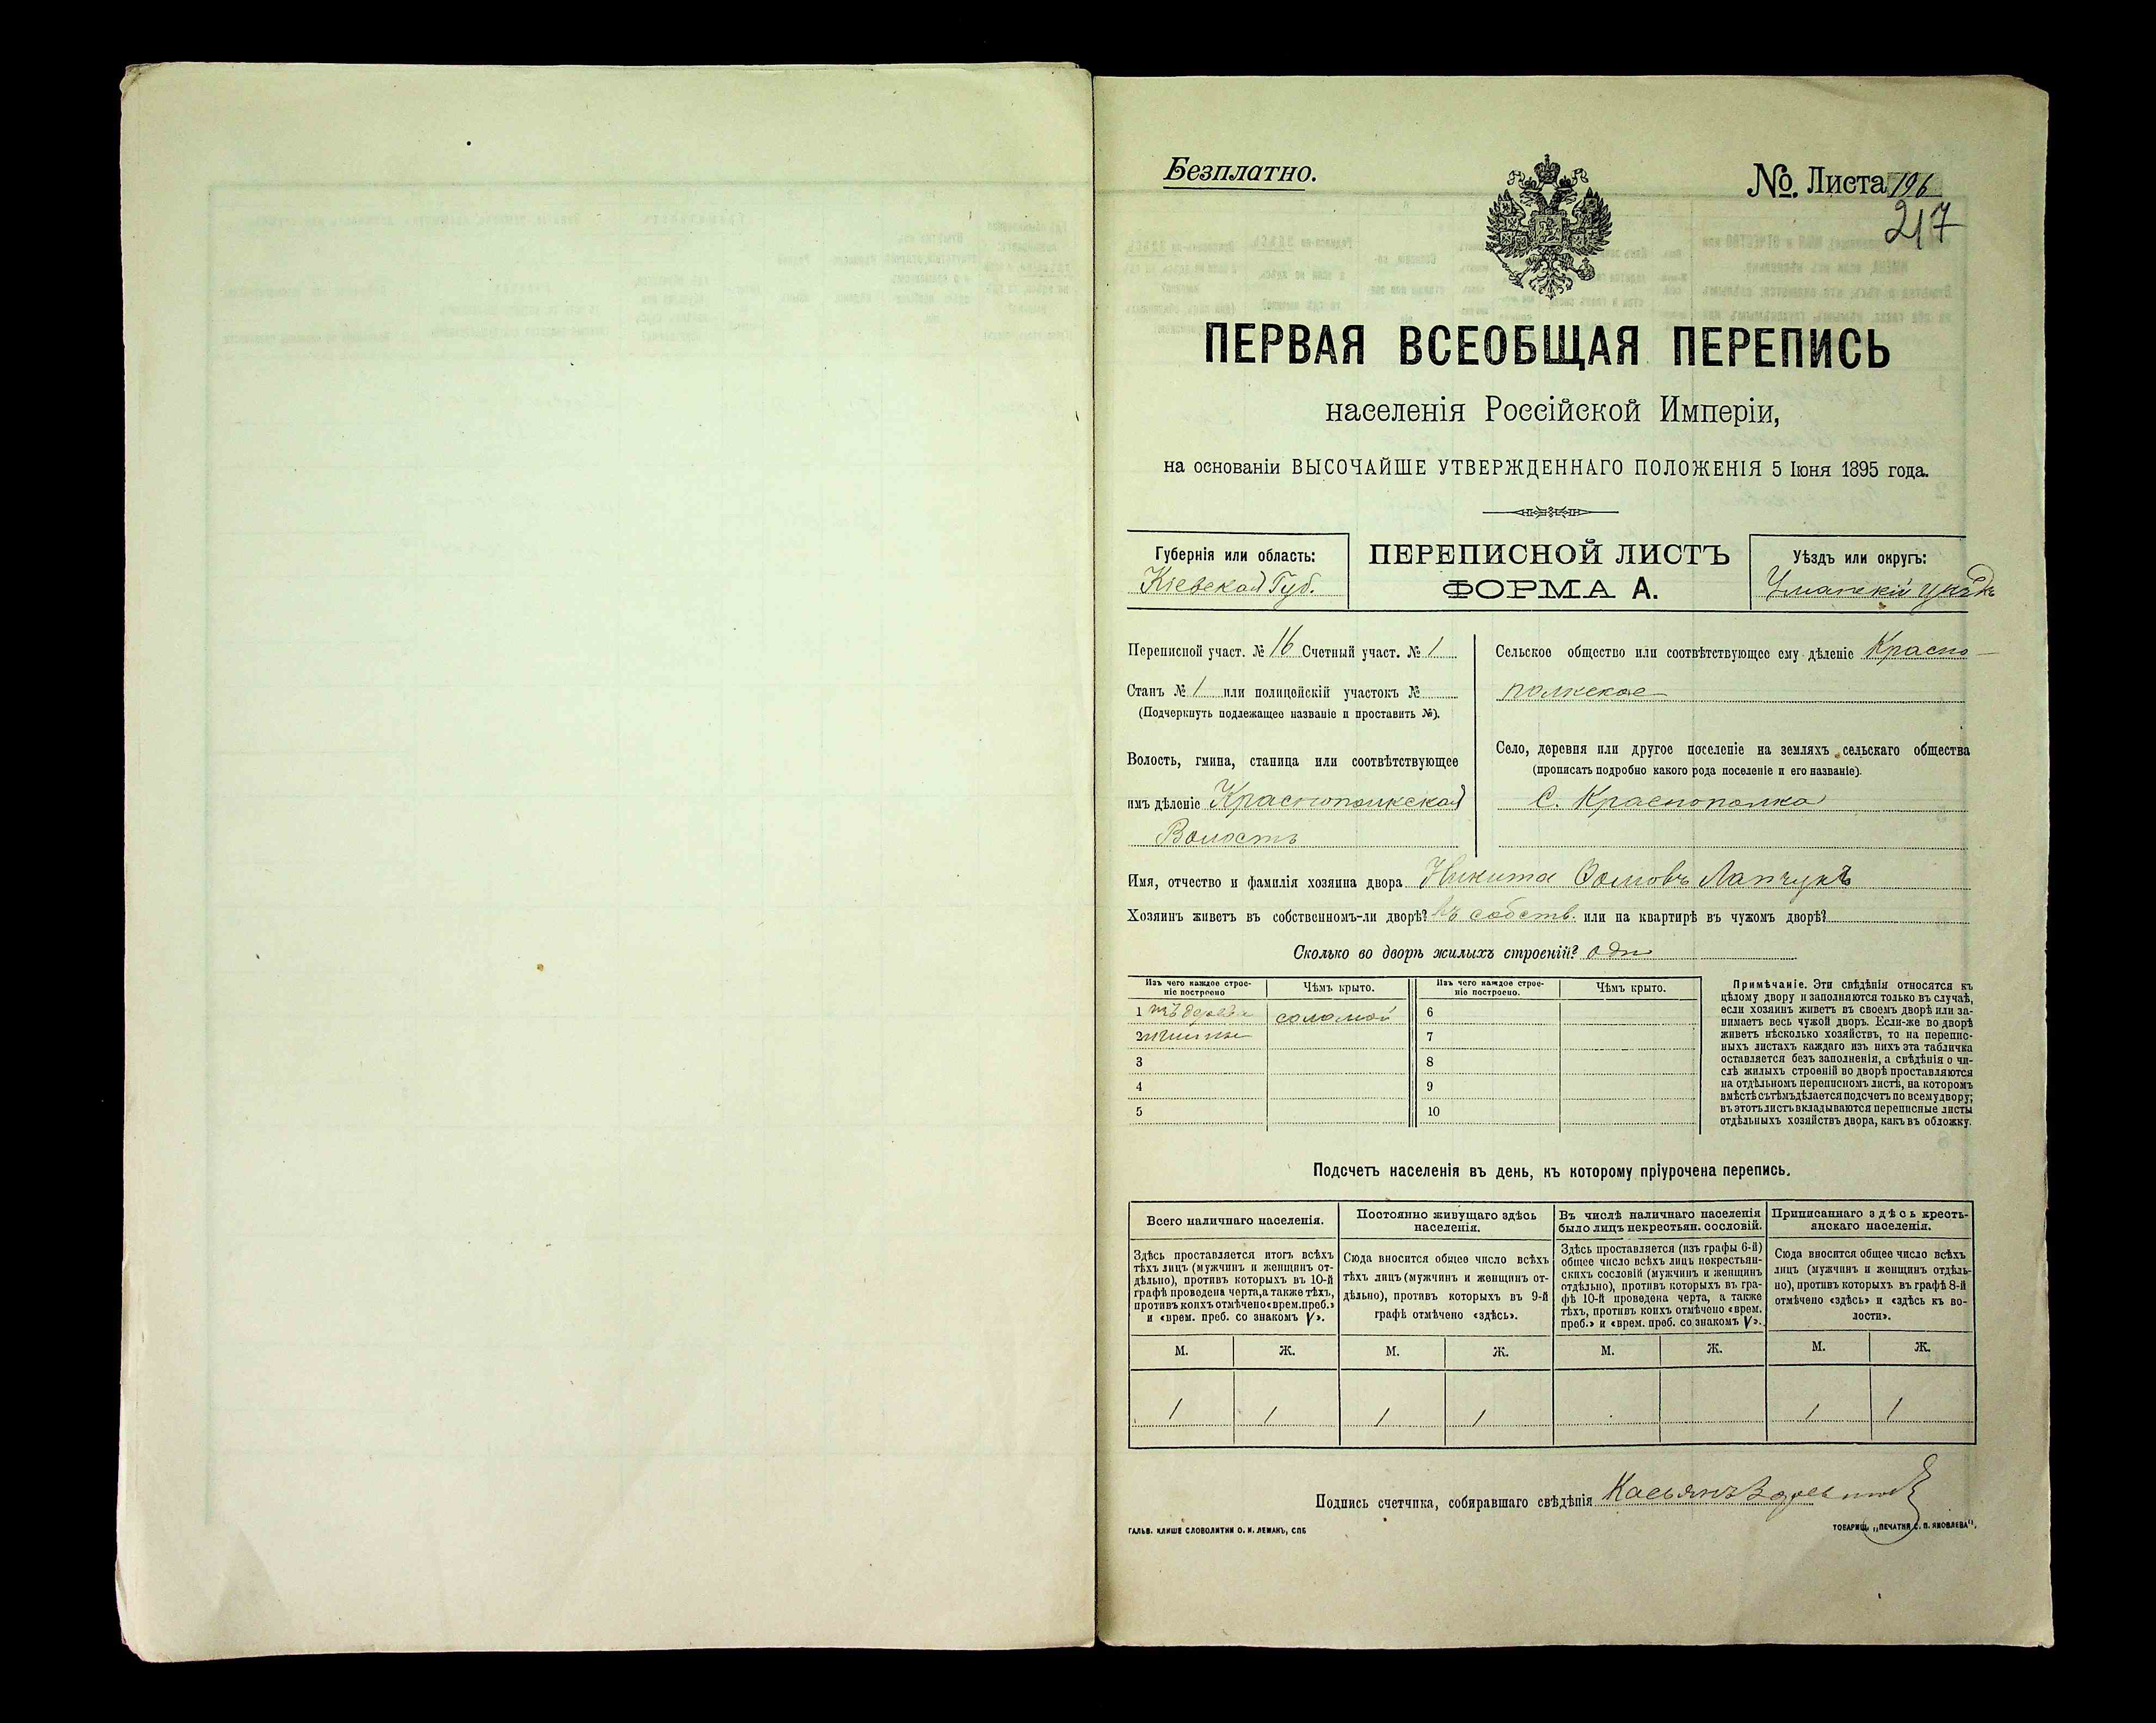 Безплатно.
№ Листа 196
217
ПЕРВАЯ ВСЕОБЩАЯ ПЕРЕПИСЬ
населенія Россійской Имперіи,
на основаніи ВЫСОЧАЙШЕ УТВЕРЖДЕННАГО ПОЛОЖЕНІЯ 5 Іюня 1895 года.
Губернія или область:
Кіевская Губ.
ПЕРЕПИСНОЙ ЛИСТЪ
ФОРМА А.
Уѣздъ или округъ:
Уманскій уѣздъ
Переписной участ. № 16 Счетный участ. № 1
Станъ № 1 или полицейскій участокъ №
(Подчеркнуть подлежащее названіе и проставить №).
Волость, гмина, станица или соотвѣтствующее
имъ дѣленіе Краснополкская
Волость
Сельское общество или соотвѣтствующее ему дѣленіе Красно-
полкское
Село, деревня или другое поселеніе на земляхъ сельскаго общества
(прописать подробно какого рода поселеніе и его названіе).
С. Краснополка
Имя, отчество и фамилія хозяина двора Никита Фомовъ Лапчукъ
Хозяинъ живетъ въ собственномъ-ли дворѣ? въ собств. или на квартирѣ въ чужомъ дворѣ?
Сколько во дворѣ жилыхъ строеній? одн
Изъ чего каждое строе-
ніе построено
Чѣмъ крыто.
Изъ чего каждое строе-
ніе построено.
Чѣмъ крыто.
1 соломой 6
2 7
3 8
4 9
5 10
Примѣчаніе. Эти свѣдѣнія относятся къ
цѣлому двору и заполняются только въ случаѣ,
если хозяинъ живетъ въ своемъ дворѣ или за-
нимаетъ весь чужой дворъ. Если-же во дворѣ
живетъ нѣсколько хозяйствъ, то на перепис-
ныхъ листахъ каждаго изъ нихъ эта табличка
оставляется безъ заполненія, а свѣдѣнія о чи-
слѣ жилыхъ строеній во дворѣ проставляются
на отдѣльномъ переписномъ листѣ, на которомъ
вмѣстѣ съ тѣмъ дѣлается подсчетъ по всему двору;
въ этотъ листъ вкладываются переписные листы
отдѣльныхъ хозяйствъ двора, какъ въ обложку.
Подсчетъ населенія въ день, къ которому пріурочена перепись.
Всего наличнаго населенія.
Здѣсь проставляется итогъ всѣхъ
тѣхъ лицъ (мужчинъ и женщинъ от-
дѣльно), противъ которыхъ въ 10-й
графѣ проведена черта, а также тѣхъ,
противъ коихъ отмѣчено «врем. преб.»
и «врем. преб. со знакомъ V».
Постоянно живущаго здѣсь
населенія.
Сюда вносится общее число всѣхъ
тѣхъ лицъ (мужчинъ и женщинъ от-
дѣльно), противъ которыхъ въ 9-й
графѣ отмѣчено «здѣсь».
Въ числѣ наличнаго населенія
было лицъ некрестьян. сословій.
Здѣсь проставляется (изъ графы 6-й)
общее число всѣхъ лицъ некрестьян-
скихъ сословій (мужчинъ и женщинъ
отдѣльно), противъ которыхъ въ гра-
фѣ 10-й проведена черта, а также
тѣхъ, противъ коихъ отмѣчено «врем.
преб.» и «врем. преб. со знакомъ V».
Приписаннаго здѣсь кресть-
янскаго населенія.
Сюда вносится общее число всѣхъ
лицъ (мужчинъ и женщинъ отдѣль-
но), противъ которыхъ въ графѣ 8-й
отмѣчено «здѣсь» и «здѣсь къ во-
лости».
М. Ж. М. Ж. М. Ж. М. Ж.
1 1 1 1 1 1
Подпись счетчика, собиравшаго свѣдѣнія Касьянъ
ГАЛЬВ. КЛИШЕ СЛОВОЛИТНИ О. И. ЛЕМАНЪ, СПБ
ТОВАРИЩ. „ПЕЧАТНЯ С. П. ЯКОВЛЕВА“.